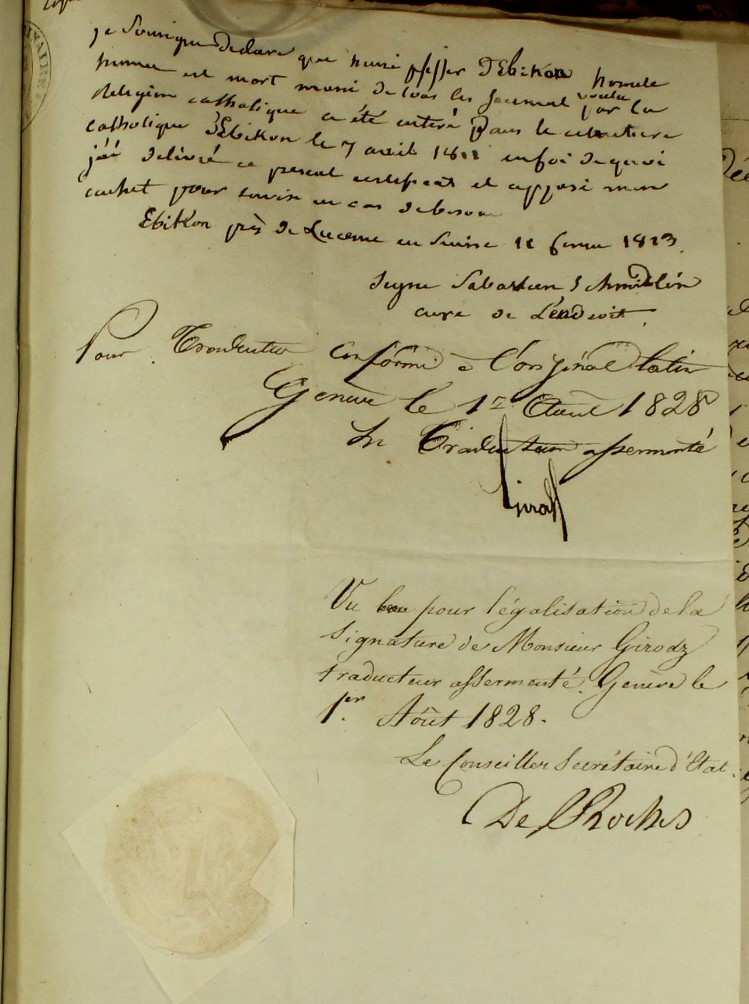 je Soussigne Declare que henri pfiffer D'Ebikon homme
est mort muni de tous les par la
Religion catholique a été enterré dans le cimetiere
catholique D'Ebikon le 7 avril 1811 en foi de quoi
j'ai delivré ce present certificat et apposé mon
cachet pour servir en cas de besoin
Ebikon près de Lucerne en Suisse 12 1823.
signe Sebastien Schmidlin
curé de L'endroit.
Pour Traduction conforme à l'original latin
Genève le 1er Août 1828
Le Traducteur assermenté
Girodz
Vu bon pour légalisation de la
signature de Monsieur Girodz
traducteur assermenté. Genève le
1er. Août 1828.
Le Conseiller Secrétaire d'Etat.
De Roches